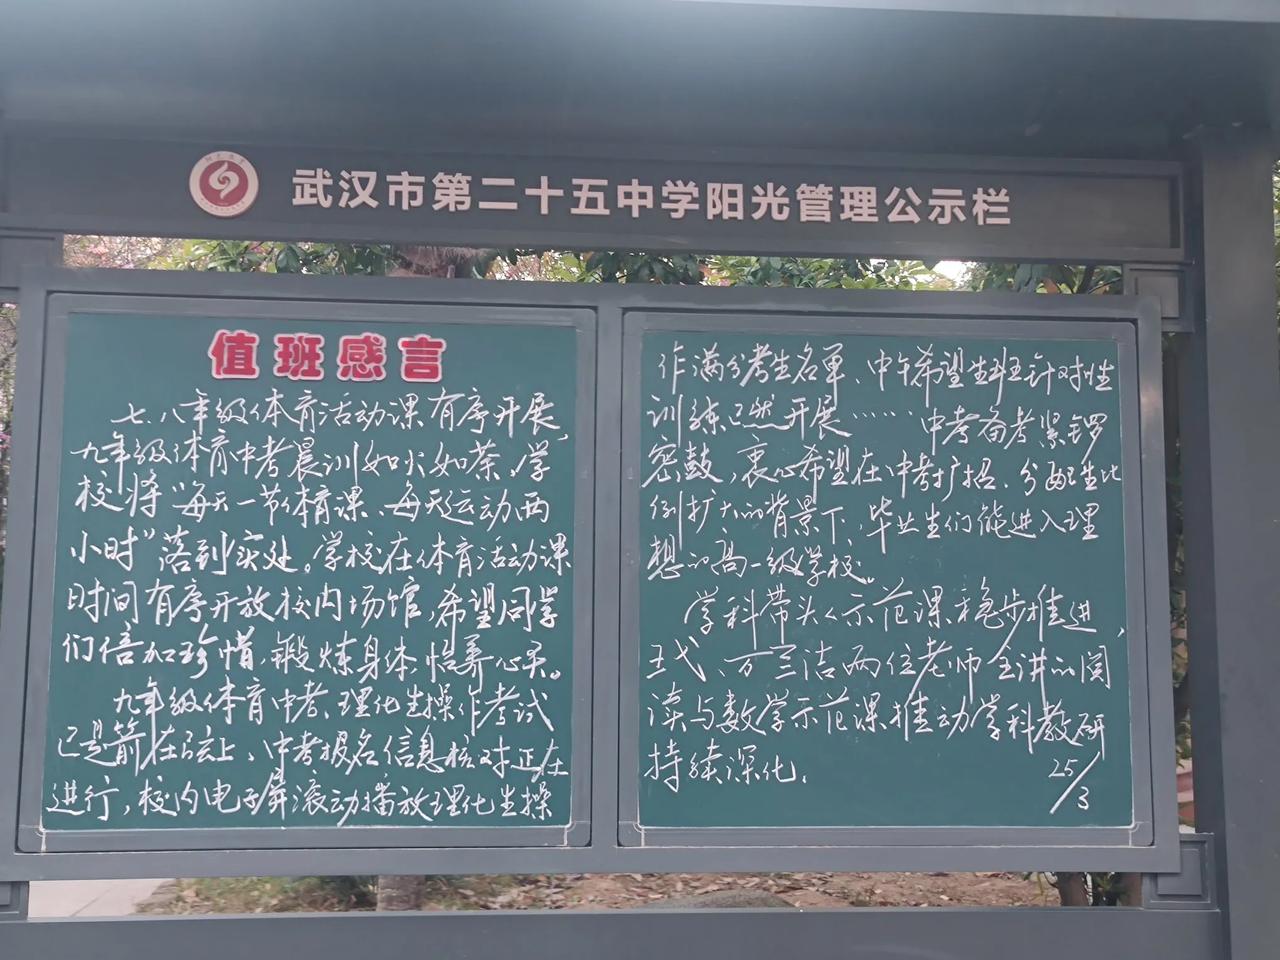 武汉市第二十五中学阳光管理公示栏
值班感言
七、八年级体育活动课有序开展,
九年级体育中考晨训如火如荼。学
校将“每天一节体育课、每天运动两
小时”落到实处。学校在体育活动课
时间有序开放校内场馆,希望同学
们倍加珍惜,锻炼身体,怡养心灵。
九年级体育中考、理化生操作考试
已是箭在弦上、中考报名信息核对正在
进行,校内电子屏滚动播放理化生操
作满分考生名单、中午希望生班级针对性
训练已然开展……中考备考紧锣
密鼓,衷心希望在中考扩招、分配生比
例扩大的背景下,毕业生们能进入理
想的高一级学校。
学科带头人示范课稳步推进,
王弋、万兰洁两位老师主讲的阅
读与数学示范课推动学科教研
持续深化.
25/3